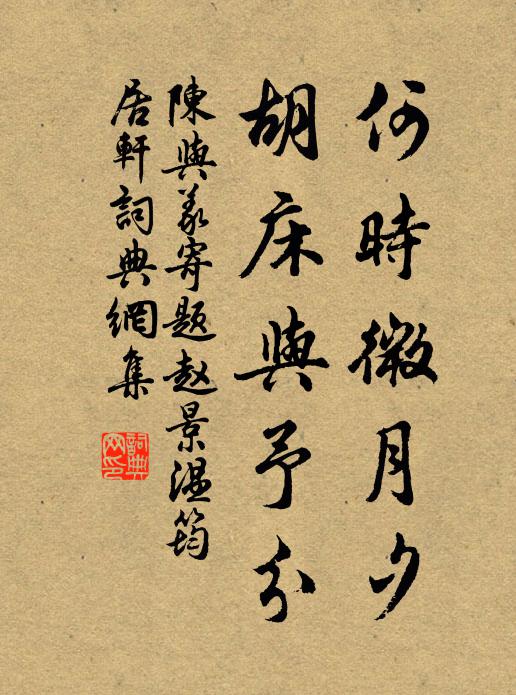 何時微月夕
胡床與予分
陳與義寄題趙景溫筠
居軒詞典網集
詞典網印